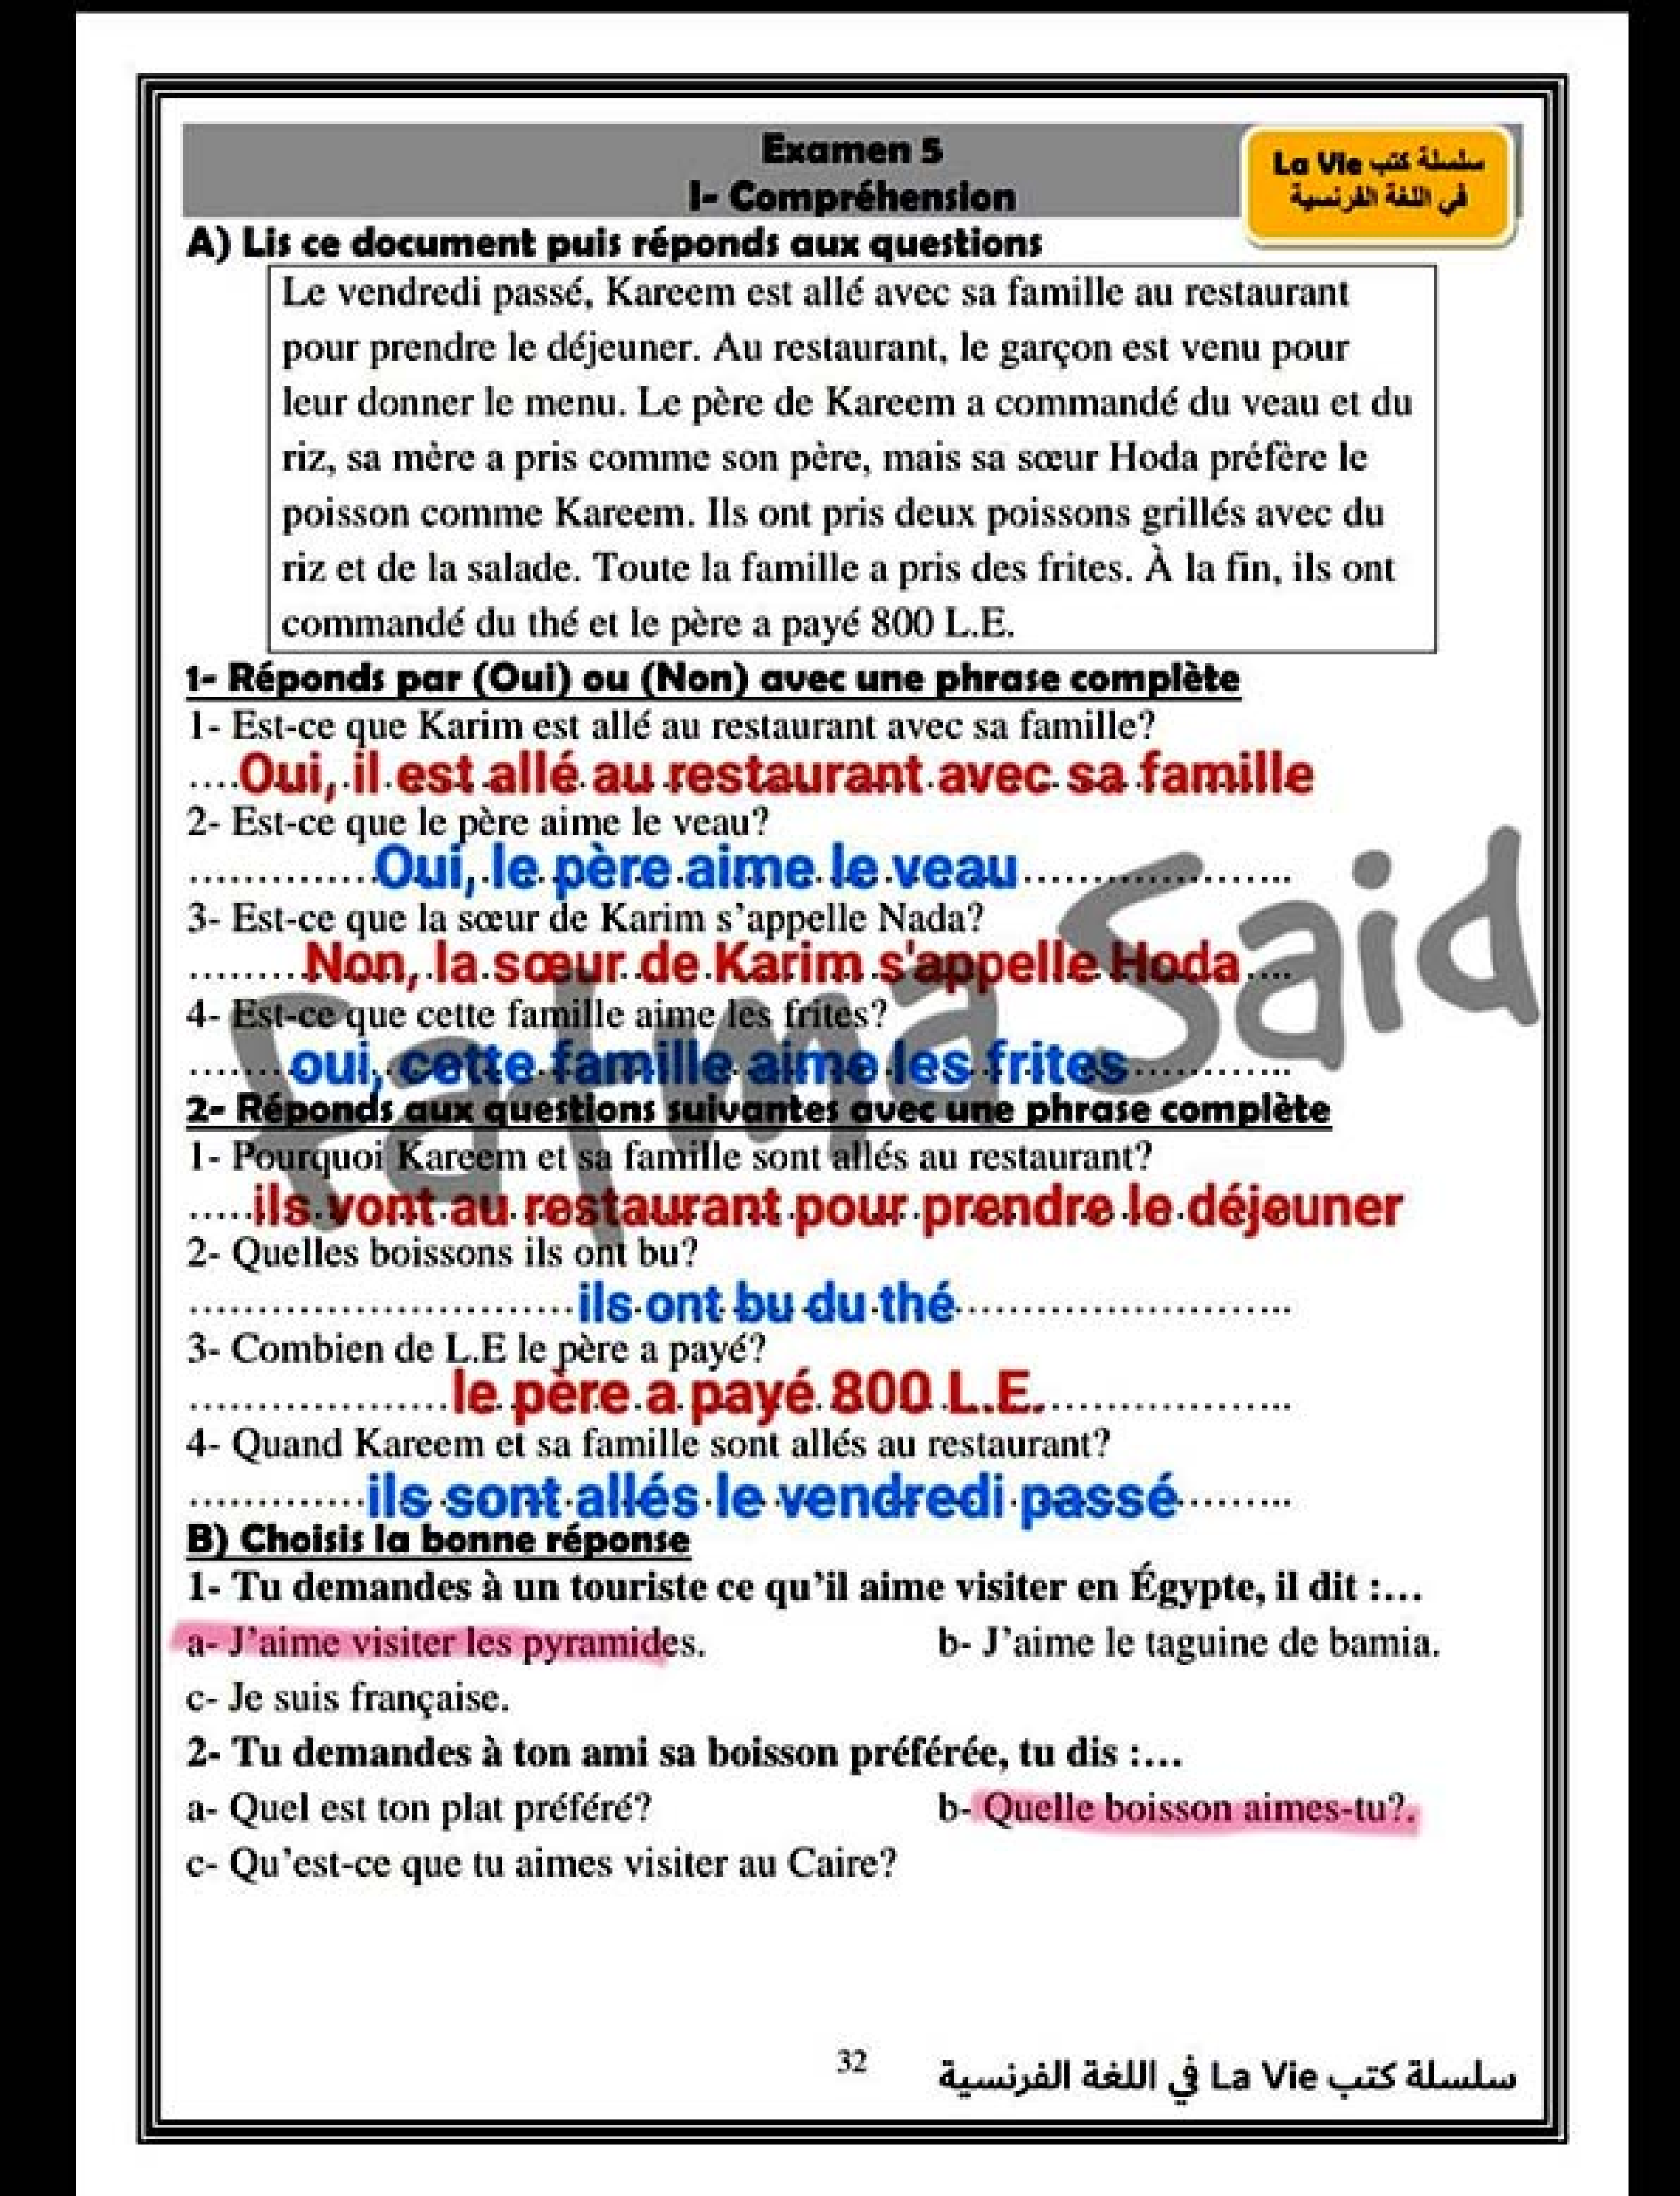 Examen 5
I- Compréhension
سلسلة كتب La Vie
في اللغة الفرنسية
A) Lis ce document puis réponds aux questions
Le vendredi passé, Kareem est allé avec sa famille au restaurant
pour prendre le déjeuner. Au restaurant, le garçon est venu pour
leur donner le menu. Le père de Kareem a commandé du veau et du
riz, sa mère a pris comme son père, mais sa sœur Hoda préfère le
poisson comme Kareem. Ils ont pris deux poissons grillés avec du
riz et de la salade. Toute la famille a pris des frites. À la fin, ils ont
commandé du thé et le père a payé 800 L.E.
1- Réponds par (Oui) ou (Non) avec une phrase complète
1- Est-ce que Karim est allé au restaurant avec sa famille?
....Oui, il est allé au restaurant avec sa famille
2- Est-ce que le père aime le veau?
..............Oui, le père aime le veau....................
3- Est-ce que la sœur de Karim s'appelle Nada?
.........Non, la sœur de Karim s'appelle Hoda....
4- Est-ce que cette famille aime les frites?
........oui, cette famille aime les frites............
2- Réponds aux questions suivantes avec une phrase complète
1- Pourquoi Kareem et sa famille sont allés au restaurant?
.....ils vont au restaurant pour prendre le déjeuner
2- Quelles boissons ils ont bu?
............................ils ont bu du thé.........................
3- Combien de L.E le père a payé?
...................le père a payé 800 L.E...................
4- Quand Kareem et sa famille sont allés au restaurant?
.............ils sont allés le vendredi passé.........
B) Choisis la bonne réponse
1- Tu demandes à un touriste ce qu'il aime visiter en Égypte, il dit :...
a- J'aime visiter les pyramides. b- J'aime le taguine de bamia.
c- Je suis française.
2- Tu demandes à ton ami sa boisson préférée, tu dis :...
a- Quel est ton plat préféré? b- Quelle boisson aimes-tu?.
c- Qu'est-ce que tu aimes visiter au Caire?
32
سلسلة كتب La Vie في اللغة الفرنسية
Fatma Said